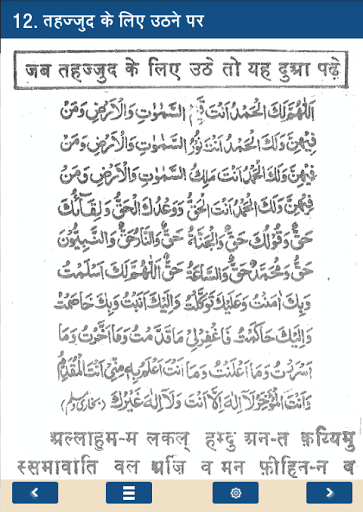 12. तहज्जुद के लिए उठने पर
जब तहज्जुद के लिए उठे तो यह दुआ पढ़े
اَللّٰهُمَّ لَكَ الْحَمْدُ اَنْتَ قَيِّمُ السَّمٰوٰتِ وَالْاَرْضِ وَمَنْ
فِيْهِنَّ وَلَكَ الْحَمْدُ اَنْتَ نُوْرُ السَّمٰوٰتِ وَالْاَرْضِ وَمَنْ
فِيْهِنَّ وَلَكَ الْحَمْدُ اَنْتَ مَلِكُ السَّمٰوٰتِ وَالْاَرْضِ وَمَنْ
فِيْهِنَّ وَلَكَ الْحَمْدُ اَنْتَ الْحَقُّ وَوَعْدُكَ الْحَقُّ وَلِقَآئُكَ
حَقٌّ وَقَوْلُكَ حَقٌّ وَالْجَنَّةُ حَقٌّ وَالنَّارُ حَقٌّ وَالنَّبِيُّوْنَ
حَقٌّ وَمُحَمَّدٌ حَقٌّ وَالسَّاعَةُ حَقٌّ اَللّٰهُمَّ لَكَ اَسْلَمْتُ
وَبِكَ اٰمَنْتُ وَعَلَيْكَ تَوَكَّلْتُ وَاِلَيْكَ اَنَبْتُ وَبِكَ خَاصَمْتُ
وَاِلَيْكَ حَاكَمْتُ فَاغْفِرْلِيْ مَا قَدَّمْتُ وَمَا اَخَّرْتُ وَمَا
اَسْرَرْتُ وَمَا اَعْلَنْتُ وَمَا اَنْتَ اَعْلَمُ بِهٖ مِنِّيْ اَنْتَ الْمُقَدِّمُ
وَاَنْتَ الْمُؤَخِّرُ لَا اِلٰهَ اِلَّا اَنْتَ وَلَا اِلٰهَ غَيْرُكَ (بخاری و مسلم)
अल्लाहुम-म लकल् हम्दु अन-त क़य्यिमु
स्समावाति वल अर्ज़ि व मन फ़ीहिन-न व